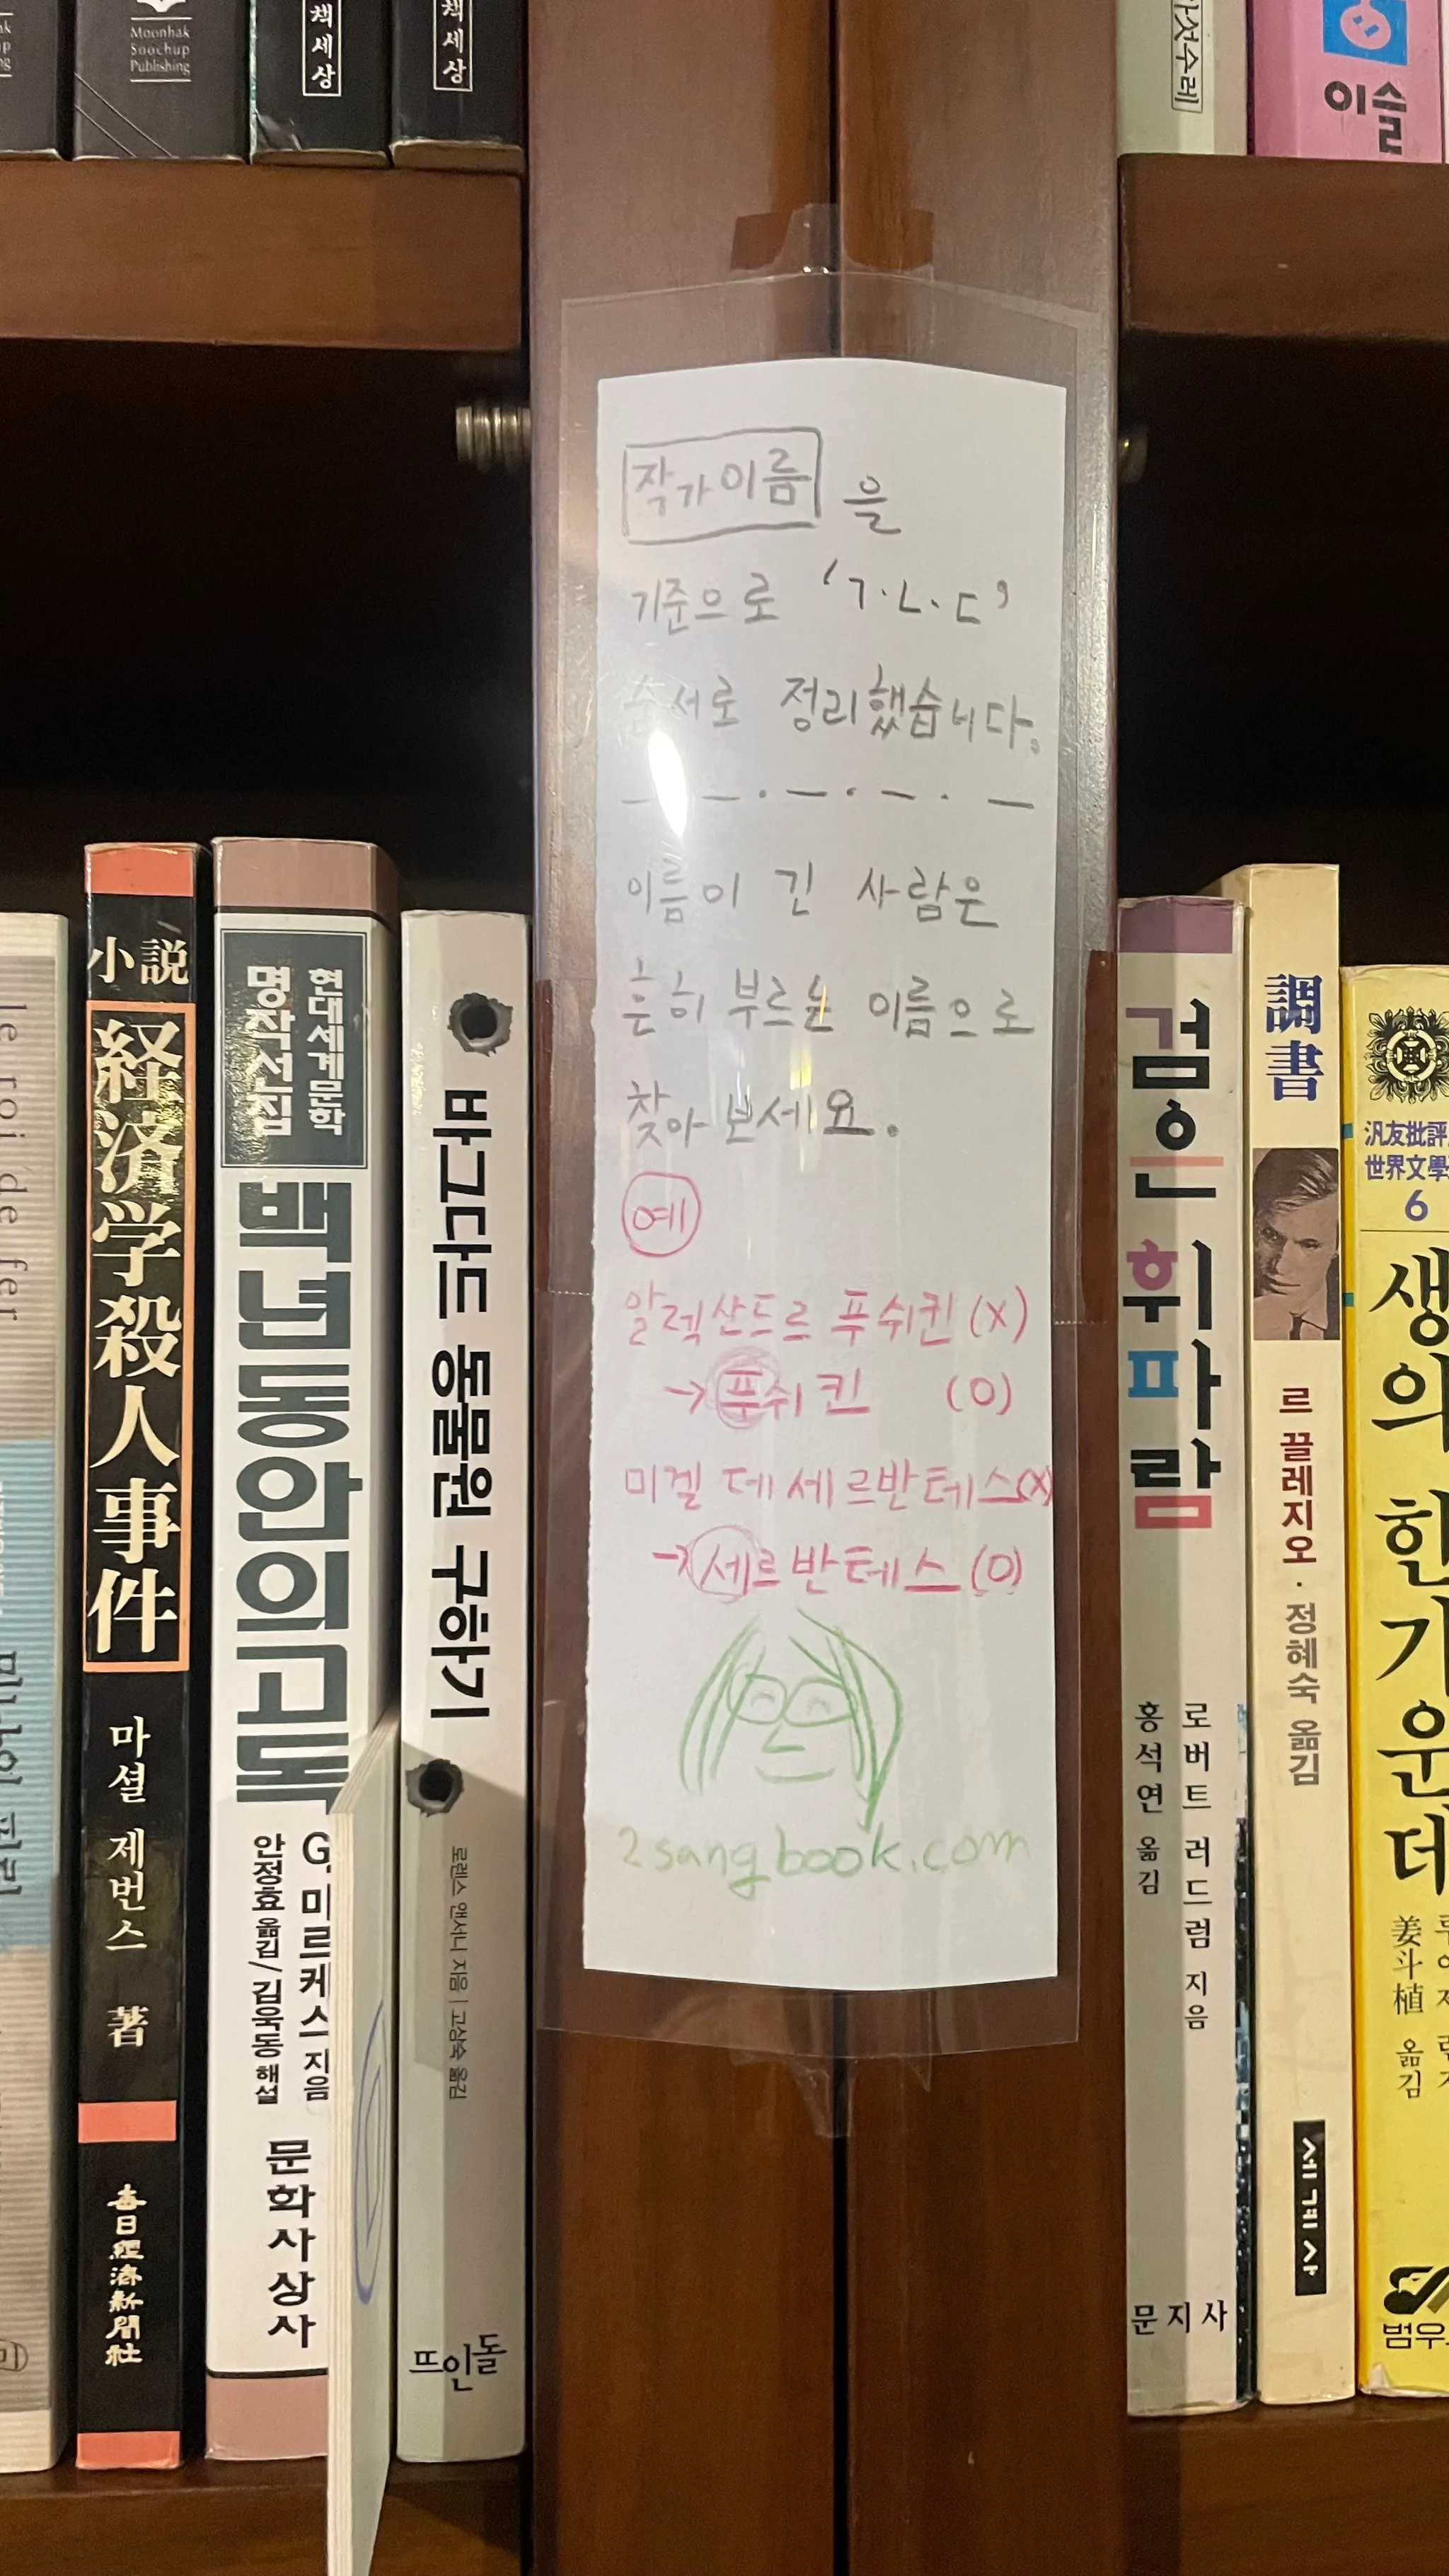 Moonhak
Soochup
Publishing
책세상
책세상
이슬
작가이름 을
기준으로 'ㄱ·ㄴ·ㄷ'
순서로 정리했습니다.
이름이 긴 사람은
흔히 부르는 이름으로
찾아보세요.
예
알렉산드르 푸쉬킨 (X)
→ 푸쉬킨 (O)
미겔 데 세르반테스(X)
→ 세르반테스 (O)
2sangbook.com
le roi de fer
小説
経済学殺人事件
마셜 제번스 著
每日經濟新聞社
현대세계문학
명작선집
백년동안의고독
G. 마르케스 지음
안정효 옮김/김욱동 해설
문학사상사
바그다드 동물원 구하기
로렌스 앤서니 지음 | 고상숙 옮김
뜨인돌
검은 휘파람
로버트 러드럼 지음
홍석연 옮김
문지사
調書
르 끌레지오 · 정혜숙 옮김
세계사
汎友批評
世界文學
6
생의 한가운데
姜斗植 옮김
범우